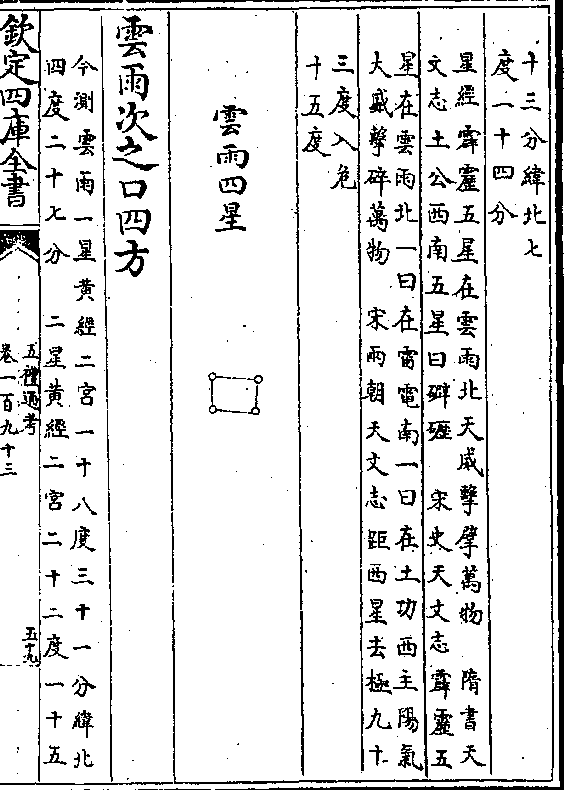 十三分緯北七
度一十四分
星經霹靂五星在雲雨北天威擊擘萬物　隋書天
文志土公西南五星曰礔礰　宋史天文志霹靂五
星在雲雨北一曰在雷電南一曰在土功西主陽氣
大盛擊碎萬物　宋兩朝天文志距西星去極九十
三度入危
十五度
雲雨四星
雲雨次之口四方
今測雲雨一星黃經二宮一十八度三十一分緯北
四度二十七分　二星黃經二宮二十二度一十五
欽定四庫全書
五禮通考
卷一百九十三
五十九